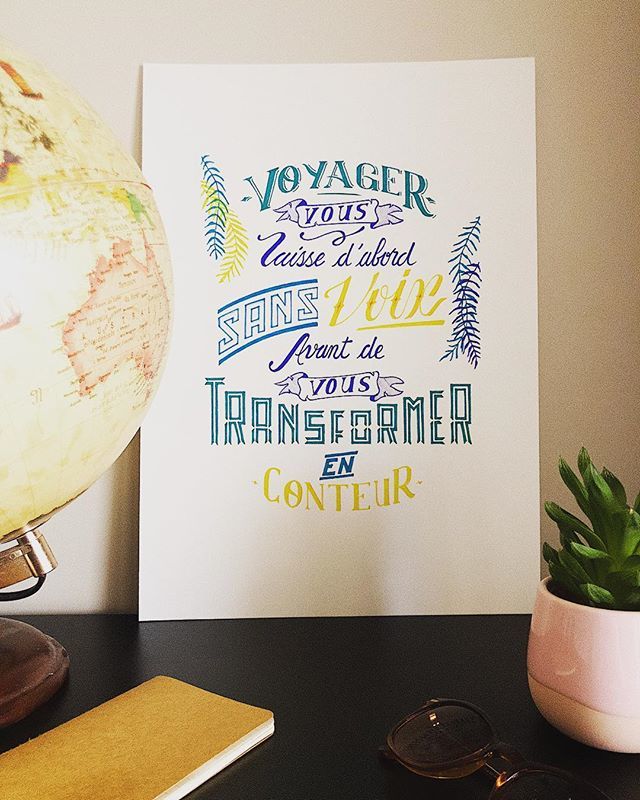 VOYAGER
VOUS
laisse d'abord
SANS Voix
Avant de
VOUS
TRANSFORMER
EN
CONTEUR